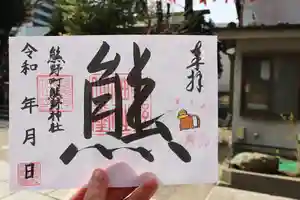 奉拝
熊
熊野町熊野神社
令和 年 月 日